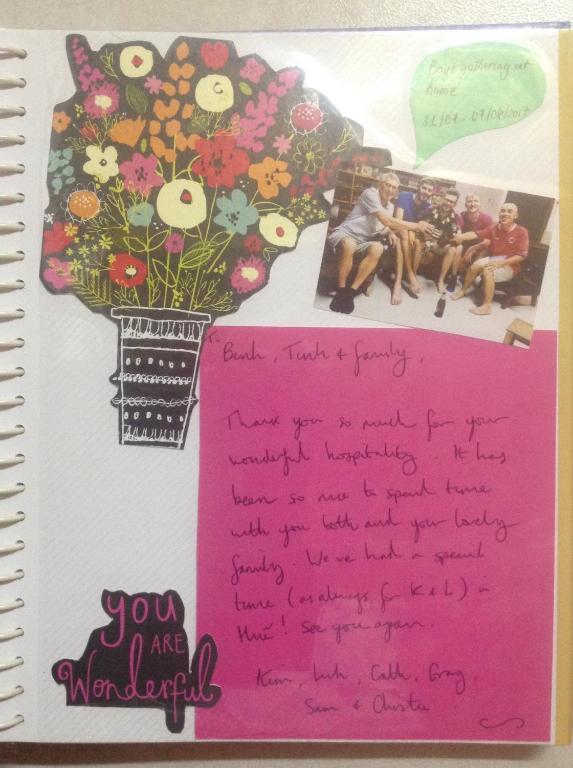 Boys gathering at
home
31/07 - 07/08/2017
To Binh, Tinh & family,
Thank you so much for your
wonderful hospitality. It has
been so nice to spend time
with you both and your lovely
family. We've had a special
time (as always, for K & L) in
Hué! See you again.
Kim, Linh, Cath, Greg,
Sean &
YOU
ARE
Wonderful